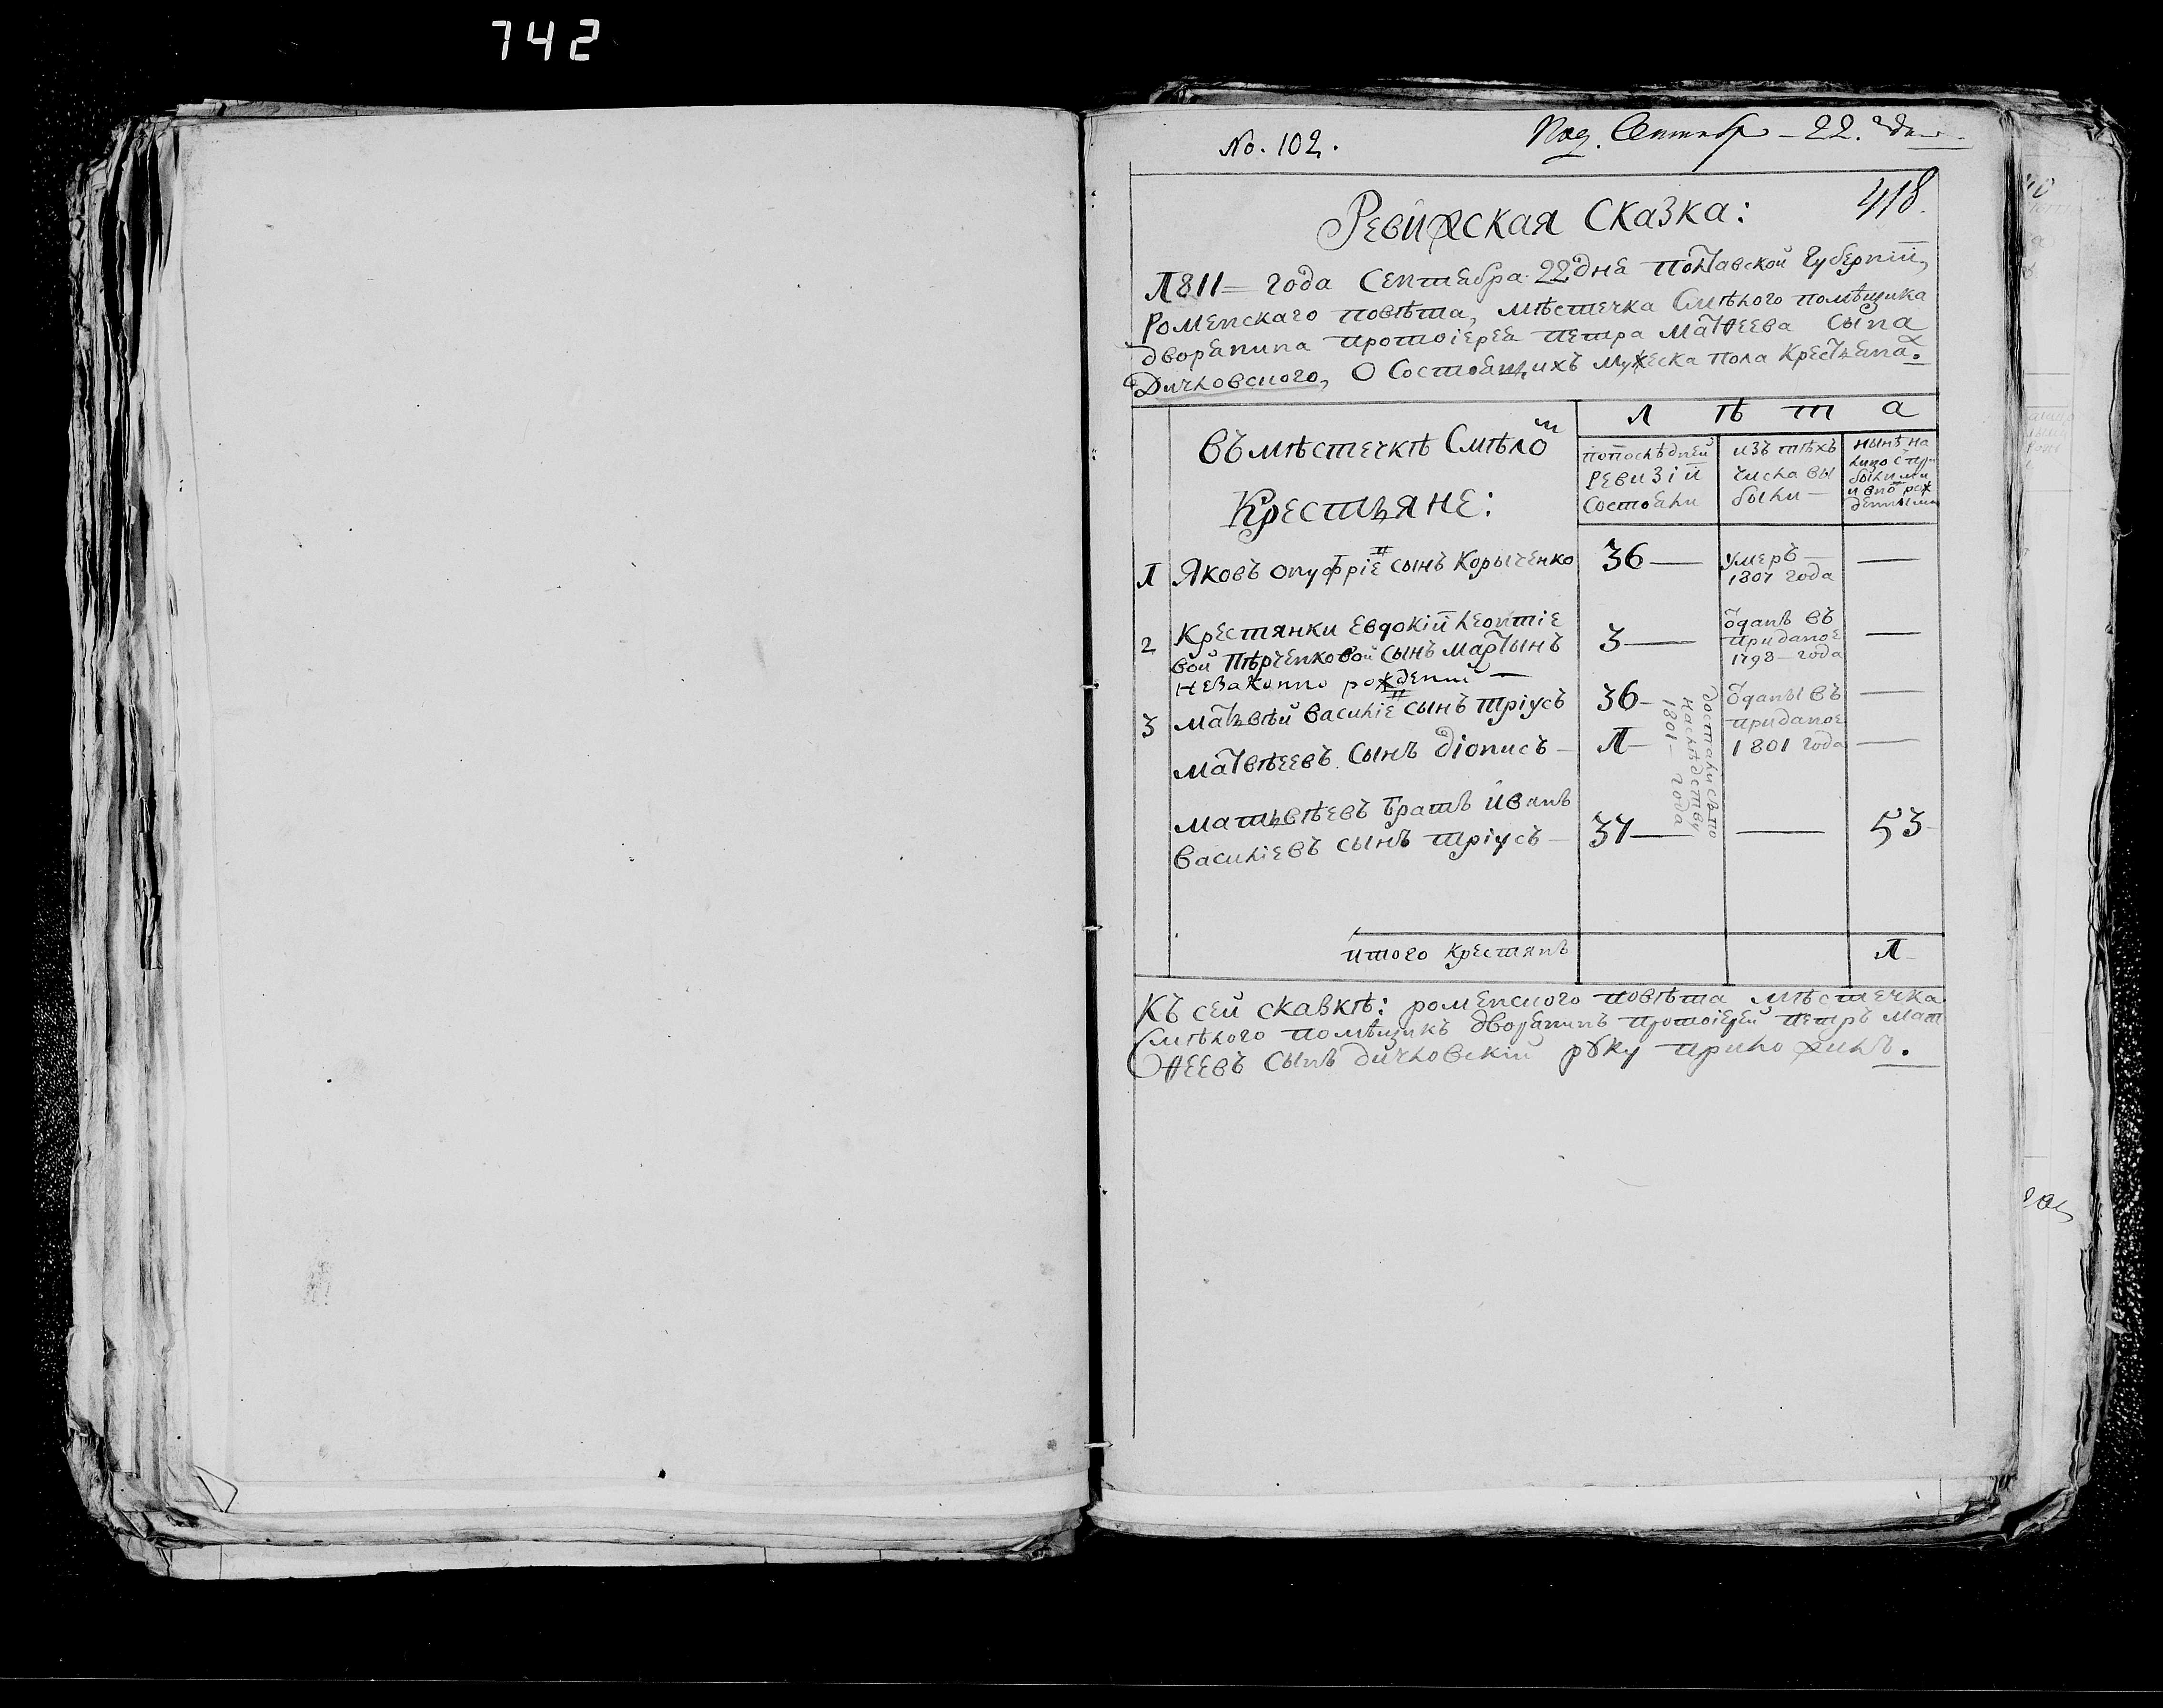 742
No. 102.
Под. Сентября 22. дня
418.
Ревижская сказка:
1811 года Сентября 22 дня Полтавской Губерніи,
Роменскаго повѣта, мѣстечка Смѣлого помѣщика
дворянина протоіерея Петра Матѳеева сына
Дичковского, О Состоящихъ мужеска пола Крестьянахъ.
Въ мѣстечкѣ Смѣлом
Крестьяне:
Л ѣ т а
по послѣдней ревизіи состояли
изъ тѣхъ числа выбыли
нынѣ на лицо с прибылими и вно рожденными
1 Яковъ Онуфріе сынъ Корыченко 36 — умеръ 1807 года —
2 Крестянки Евдокіи Леонтіе
вой Пѣрченковой сынъ Мартынъ 3 — отданъ въ придание 1798 года —
незаконно рожденній —
3 Матьвѣй Василіе сынъ Тріусъ 36 — отданы въ —
Матвѣеевъ сынъ Діонисъ — 1 — приданое 1801 года —
достались по наслѣдству 1801 года
Матьвѣевъ братъ Иванъ
Василіевъ сынъ Тріусъ — 37 — — 53
итого крестянъ 1
Къ сей сказкѣ: роменского повѣта мѣстечка
Смѣлого помѣщикъ дворянинъ протоіерей Петръ Мат
ѳеевъ сынъ Дичковскій руку приложилъ.